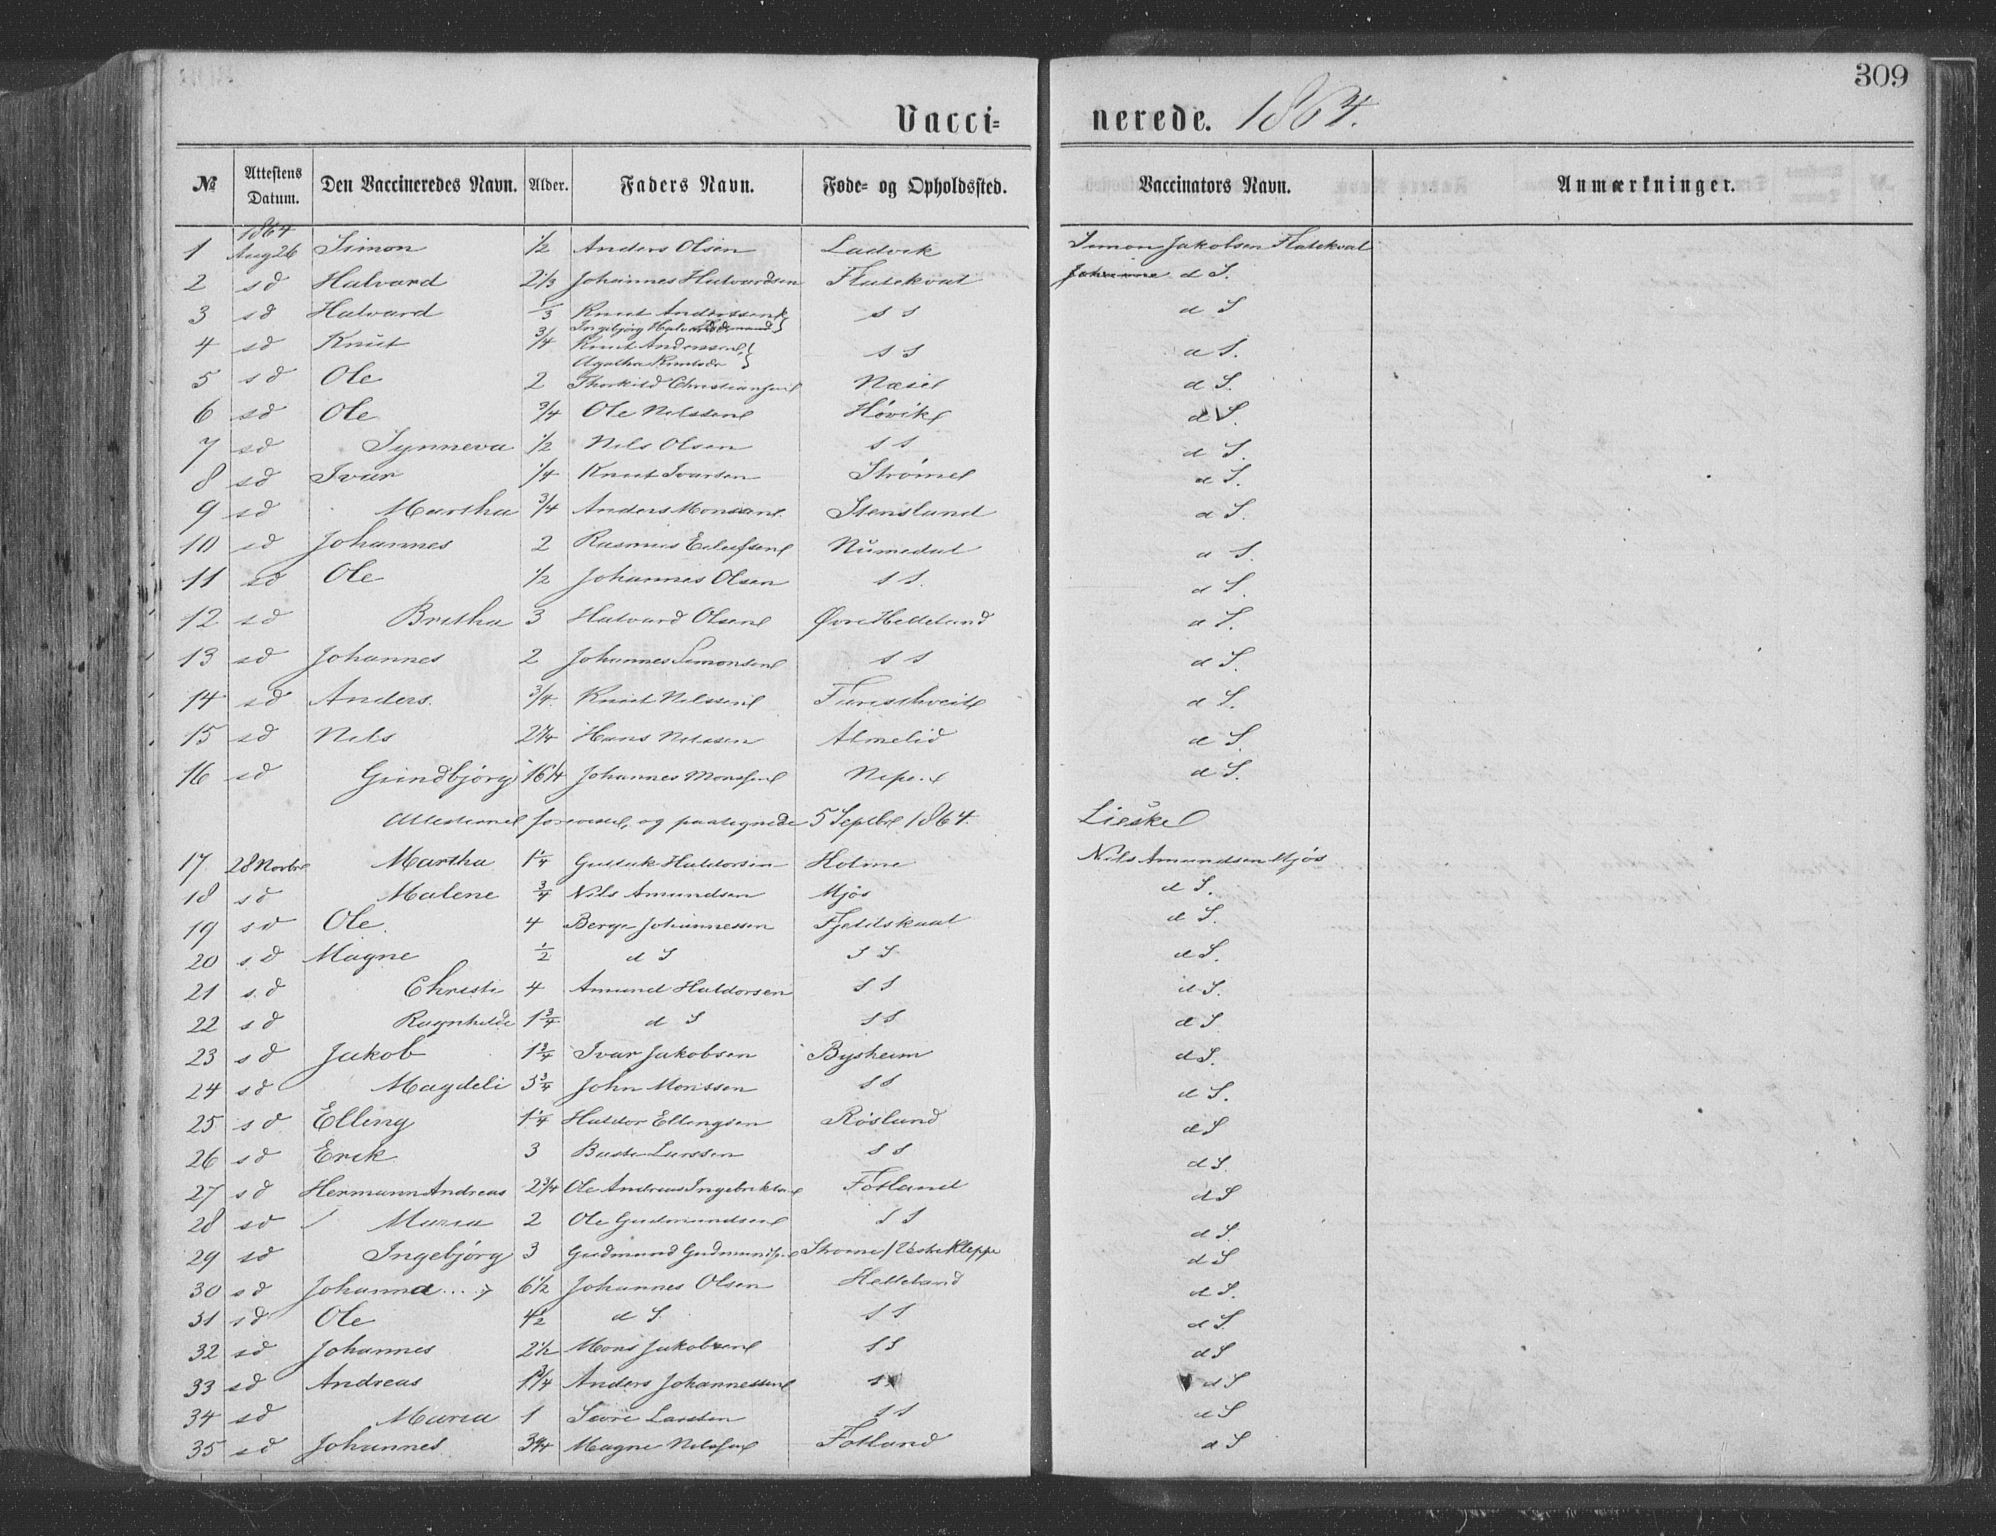 309
Vacci= nerede. 1864.
№ Attestens Datum. Den Vaccineredes Navn. Alder. Faders Navn. Føde= og Opholdssted. Vaccinators Navn. Anmærkninger.
1864
1 Aug 26 Simon 1/2 Anders Olsen Ladvik Simon Jakobsen Flatekval
2 sd Halvard 2 1/3 Johannes Halvardsen Flatekval d S.
3 sd Halvard 1/3 Knut Anderssen s s d S
Ingebjørg
4 sd Knut 3/4 Knut Anderssen s s d S.
Agatha Knutsdr
5 sd Ole 2 Thorkild Christiansen Næse d S.
6 sd Ole 3/4 Ole Nelssen Høvik d S.
7 sd Synneva 1/2 Nels Olsen s s d S.
8 sd Ivar 1/4 Knut Ivarsen Strøme d S.
9 sd Martha 3/4 Anders Monsen Stensland d S.
10 sd Johannes 2 Rasmus Numedal d S.
11 sd Ole 1/2 Johannes Olsen s s. d S.
12 sd Bretha 3 Halvard Olsen Øvre Helleland d S.
13 sd Johannes 2 Johannes Simonsen s s d S.
14 sd Anders. 3/4 Knut Nelssen d S.
15 sd Nels 2 1/4 Hans Nelssen Almelid d S.
16 sd Gundbjørg 16 1/4 Johannes Monssen d S.
Attesterne foreviste, og paategnede 5 Septbr 1864. Lieske
17 28 Novbr Martha 1 1/4 Gulleik Haldorsen Holme Nils Amundsen Mjøs
18 sd Malene 3/4 Nils Amundsen Mjøs d S.
19 sd Ole. 4 Berge Johannessen Fjeldskaal d S.
20 s d Magne 1/2 d S s s d S.
21 s. d Christi 4 Amund Haldorsen s s d S.
22 s d Ragnhilde 1 3/4 d S s s d S.
23 s d Jakob 1 3/4 Ivar Jakobsen Bysheim d S.
24 s d Magdeli 5 3/4 John Monssen s s d S.
25 s d Elling 1 1/4 Haldor Ellingsen Røslund d S
26 s d Erik 3 Larssen s s d S.
27 s d Hermann Andreas 2 3/4 Ole Andreas Ingebriktsen Fotland d S
28 sd Maria 2 Ole Gudmundsen s s d S.
29 sd Ingebjørg 3 Gudmund Gudmundsen Strøme / Vestre Kleppe d S
30 s d Johanna 6 1/2 Johannes Olsen Helleland d S.
31 sd Ole 4 1/2 d S. s s d S.
32 sd Johannes 2 1/2 Mons Jakobsen s s d S
33 sd Andreas 1 3/4 Anders Johannessen s d S
34 sd Maria 1 Larssen s s d S
35 sd Johannes 3 3/4 Magne Nelssen Fotland d S